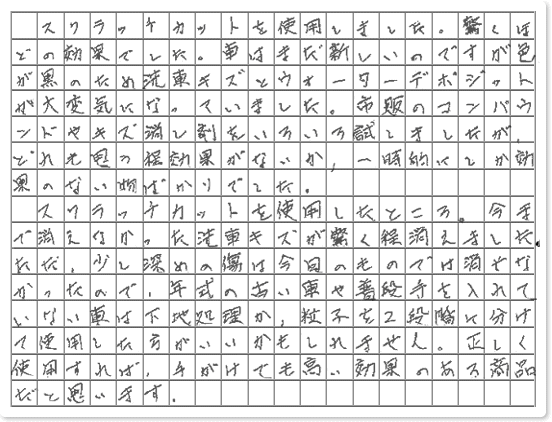 スクラッチカットを使用しました。驚くほ
どの効果でした。車はまだ新しいのですが色
が黒のため洗車キズとウォーターデポジット
が大変気になっていました。市販のコンパウ
ンドやキズ消し剤をいろいろ試しましたが、
どれも思う程効果がないか、一時的にしか効
果のない物ばかりでした。
スクラッチカットを使用したところ。今ま
で消えなかった洗車キズが驚く程消えました。
ただ、少し深めの傷は今回のものでは消せな
かったので、年式の古い車や普段手を入れて
いない車は下地処理か、粒子を2段階に分け
て使用した方がいいかもしれません。正しく
使用すれば、手がけでも高い効果のある商品
だと思います。